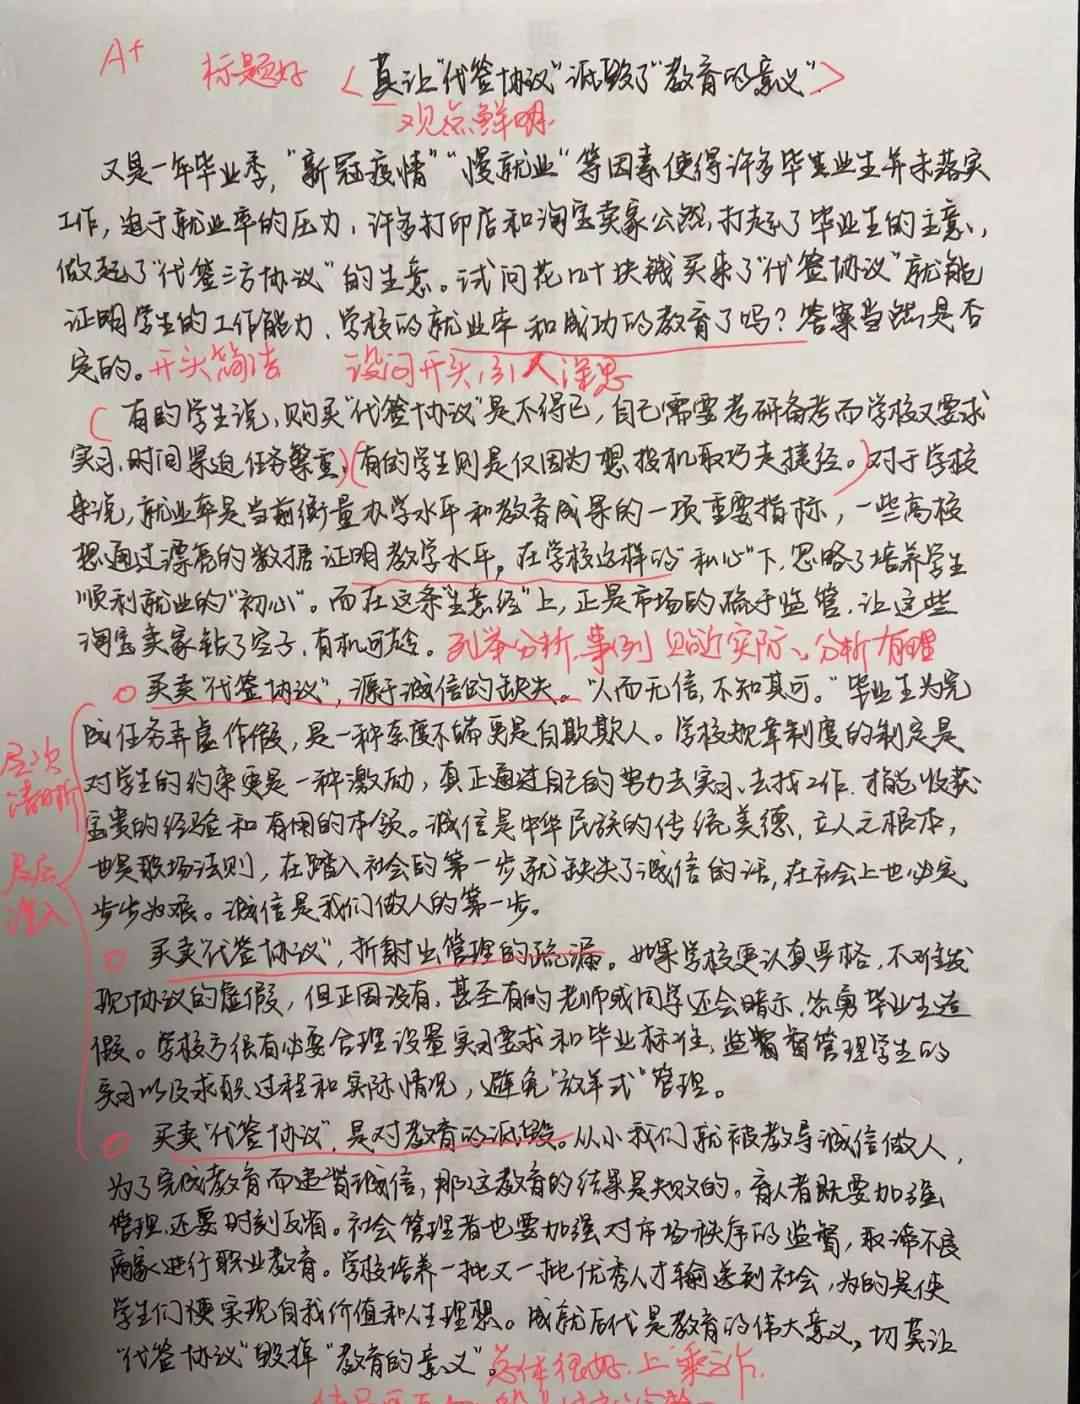 A+
标题好 《莫让“代签协议”诋毁了“教育的意义”》
观点鲜明
又是一年毕业季，“新冠疫情”“慢就业”等因素使得许多毕业生并未落实
工作，迫于就业率的压力，许多打印店和淘宝卖家公然打起了毕业生的主意，
做起了“代签三方协议”的生意。试问花几十块钱买来了“代签协议”就能
证明学生的工作能力、学校的就业率和成功的教育了吗？答案当然是否
定的。开头简洁 设问开头，引人深思
有的学生说，购买“代签协议”是不得已，自己需要考研备考而学校又要求
实习，时间紧迫任务繁重，有的学生则是仅因为想投机取巧走捷径。对于学校
来说，就业率是当前衡量办学水平和教育成果的一项重要指标，一些高校
想通过漂亮的数据证明教学水平。在学校这样的“私心”下，忽略了培养学生
顺利就业的“初心”。而在这条“生意经”上，正是市场的疏于监管，让这些
淘宝卖家钻了空子，有机可趁。列举分析，事例贴近实际、分析有理
买卖“代签协议”，源于诚信的缺失。“人而无信，不知其可。”毕业生为完
成任务弄虚作假，是一种态度不端更是自欺欺人。学校规章制度的制定是
层次清晰
对学生的约束更是一种激励，真正通过自己的努力去实习、去找工作，才能收获
宝贵的经验和有用的本领。诚信是中华民族的传统美德，立人之根本，
层层深入
也是职场法则，在踏入社会的第一步就缺失了诚信的话，在社会上也必定
步步为艰。诚信是我们做人的第一步。
买卖“代签协议”，折射出管理的疏漏。如果学校更认真严格，不难发
现协议的虚假，但正因没有，甚至有的老师或同学还会暗示、怂恿毕业生造
假。学校方很有必要合理设置实习要求和毕业标准，监督管理学生的
实习以及求职过程和实际情况，避免“放羊式”管理。
买卖“代签协议”，是对教育的诋毁。从小我们就被教导诚信做人，
为了完成教育而违背诚信，那这教育的结果是失败的。育人者既要加强
管理，还要时刻反省。社会管理者也要加强对市场秩序的监督，取谛不良
商家，进行职业教育。学校培养一批又一批优秀人才输送到社会，为的是使
学生们便实现自我价值和人生理想。成就后代是教育的伟大意义，切莫让
“代签协议”毁掉“教育的意义”。总体很好，上乘之作，